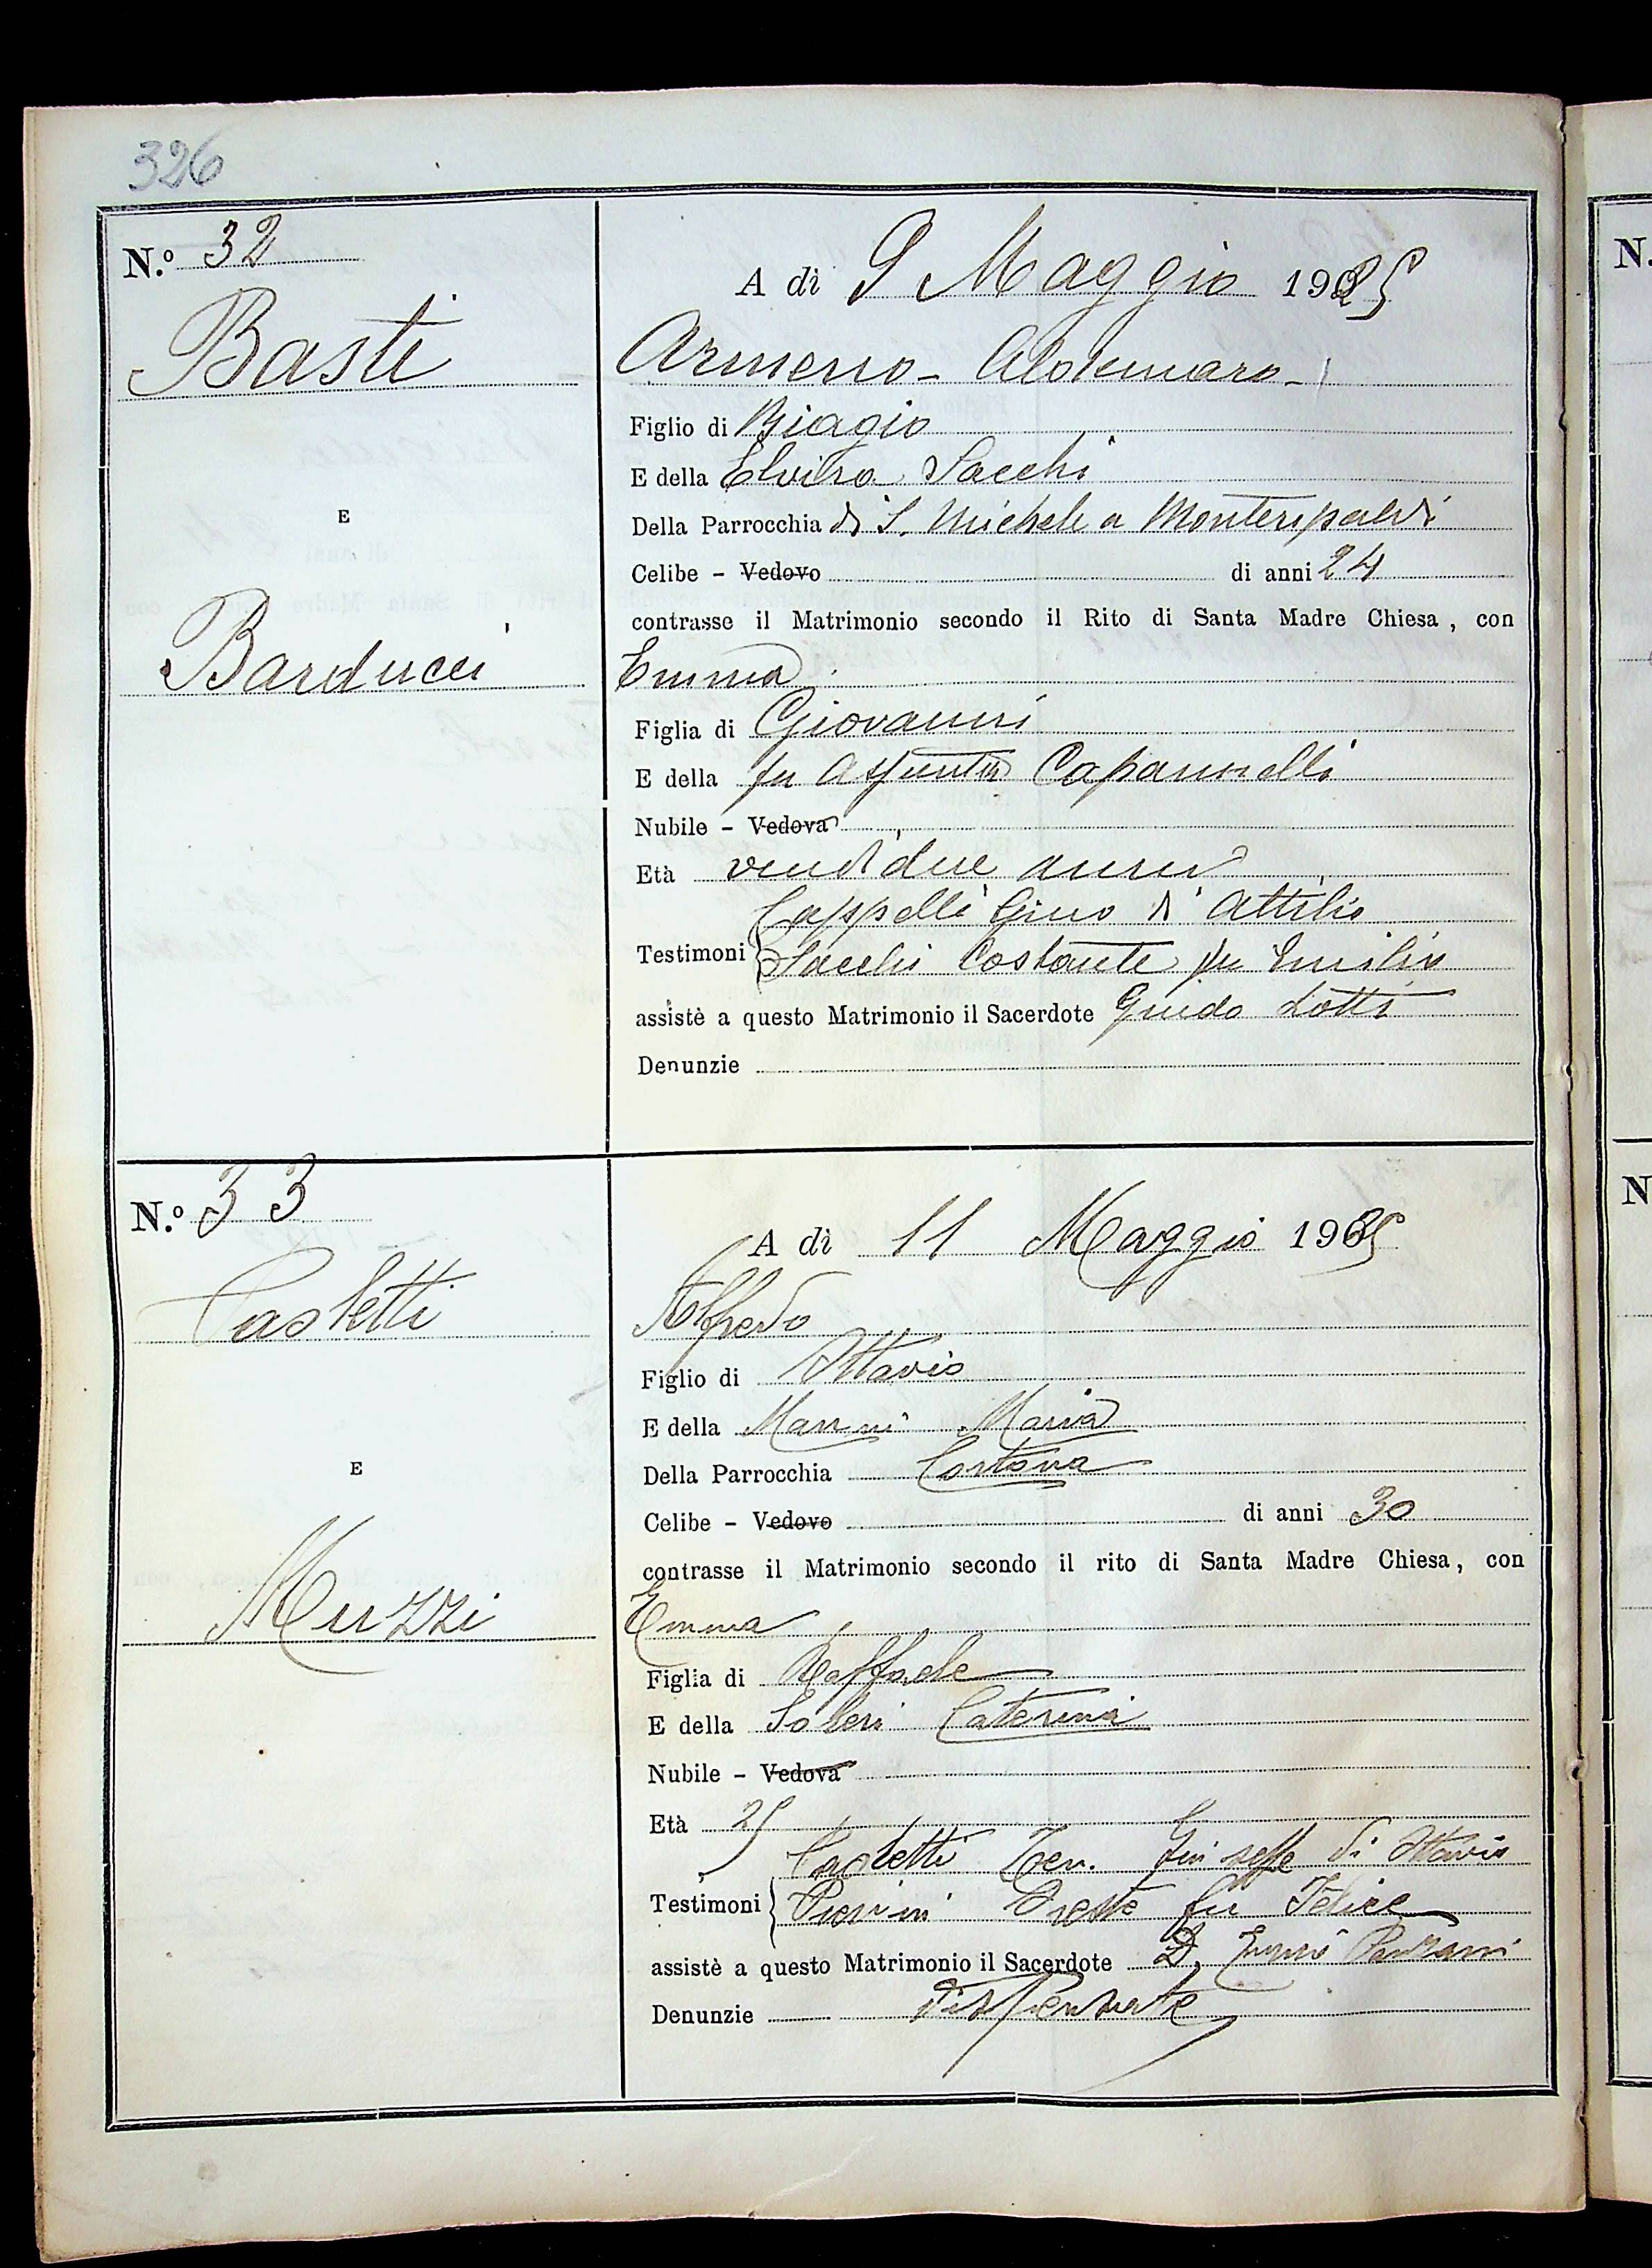 326
N.º 32
A dì 9 Maggio 1925
Basti
Armeno - Aldemaro -
Figlio di Biagio
E della Elvira Sacchi
Della Parrocchia di S. Michele a Monteripaldi
E
Celibe - Vedovo di anni 24
contrasse il Matrimonio secondo il Rito di Santa Madre Chiesa, con
Barducci
Emma
Figlia di Giovanni
E della fu Assunta Capannelli
Nubile - Vedova
Età ventidue anni
Cappelli Gino di Attilio
Testimoni Sacchi Costante fu Emilio
assistè a questo Matrimonio il Sacerdote Guido Lotti
Denunzie
N.º 33
A dì 11 Maggio 1925
Castetti
Alfredo
Figlio di Ottavio
E della Mannini Maria
Della Parrocchia Cortona
E
Celibe - Vedovo di anni 30
contrasse il Matrimonio secondo il rito di Santa Madre Chiesa, con
Muzzi
Emma
Figlia di Raffaele
E della Caterina
Nubile - Vedova
Età 25
Ten. Giuseppe di Ottavio
Testimoni Pierini Oreste fu Felice
assistè a questo Matrimonio il Sacerdote D.
Denunzie dispensate